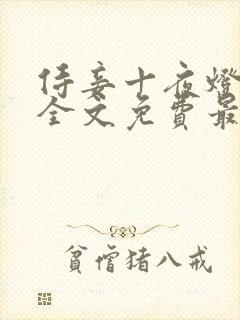 侍妾十夜燈
全文免費最
貧僧猪八戒